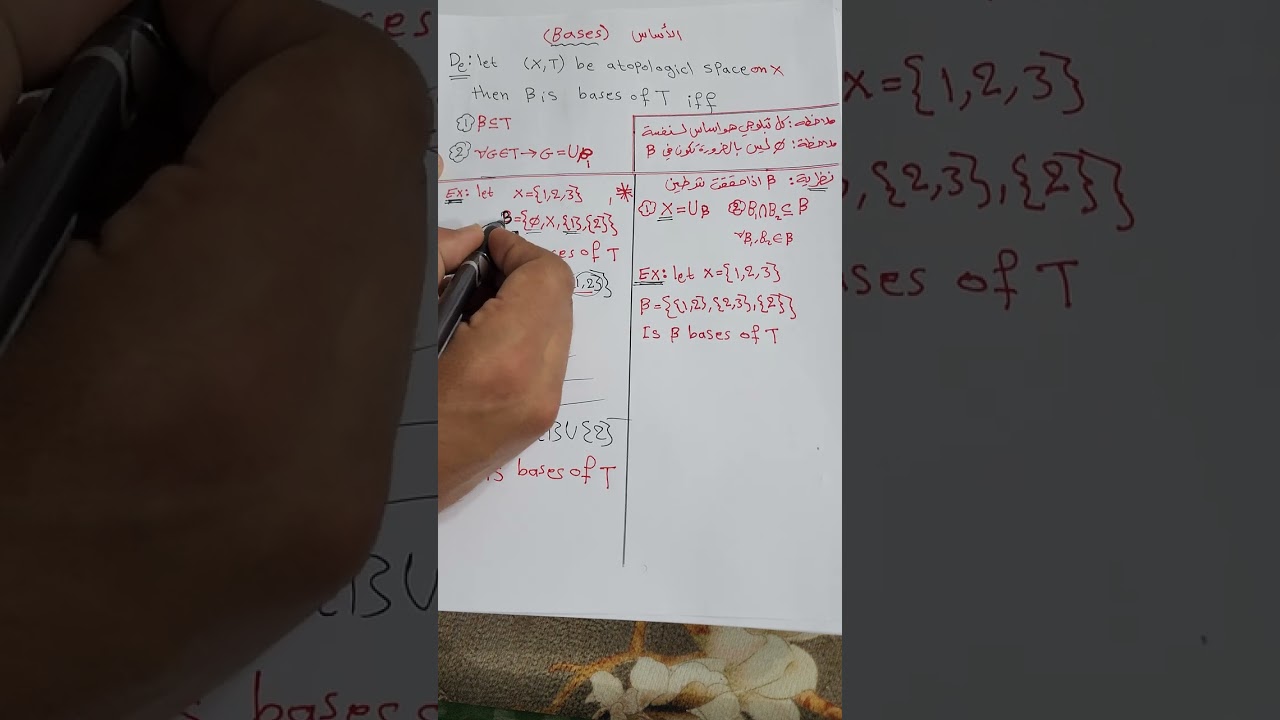 (Bases) الأساس
De: let (X,T) be atopologicl space on X
then β is bases of T iff
① β⊆T
② ∀G∈T→G=Uβ₁
ملاحظة: كل تبلوجي هو اساس لنفسة
ملاحظة: Φ ليس بالضرورة تكون في β
EX: let X={1,2,3}
β={Φ,X,{1},{2}}
ses of T
1,2}}
U{2}
is bases of T
نظرية: β اذا حققت شرطين
① X=Uβ ② β₁∩β₂⊆β
∀β₁,β₂∈β
EX: let X={1,2,3}
β={{1,2},{2,3},{2}}
Is β bases of T